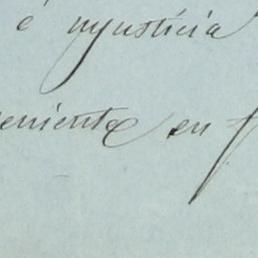 é ynjusticia
eniente en